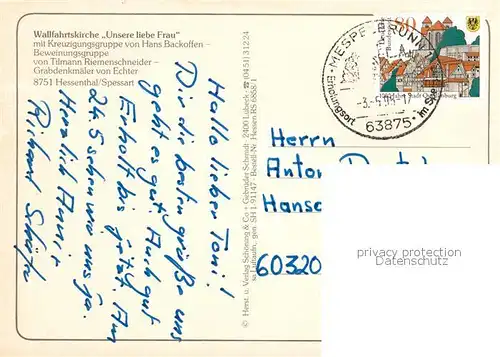 Wallfahrtskirche „Unsere liebe Frau"
mit Kreuzigungsgruppe von Hans Backoffen –
Beweinungsgruppe
von Tilmann Riemenschneider –
Grabdenkmäler von Echter
8751 Hessenthal/Spessart
Hallo lieber Toni!
Dir die besten Grüße uns
geht es gut. Auch gut
Erholt bis jetzt. Am
24.5 sehen wir uns ja.
Herzlich
Richard
© Herst. u. Verlag Schöning & Co + Gebrüder Schmidt · 2400 Lübeck · ☎ (04 51) 3 12 24
Luftaufn. gen. SH 1-911/47 · Bestell-Nr. Hessen RS 6868/1
MESPELBRUNN
Erholungsort
63875
80
Herrn
Anton
Hansa
60320
privacy protection
Datenschutz